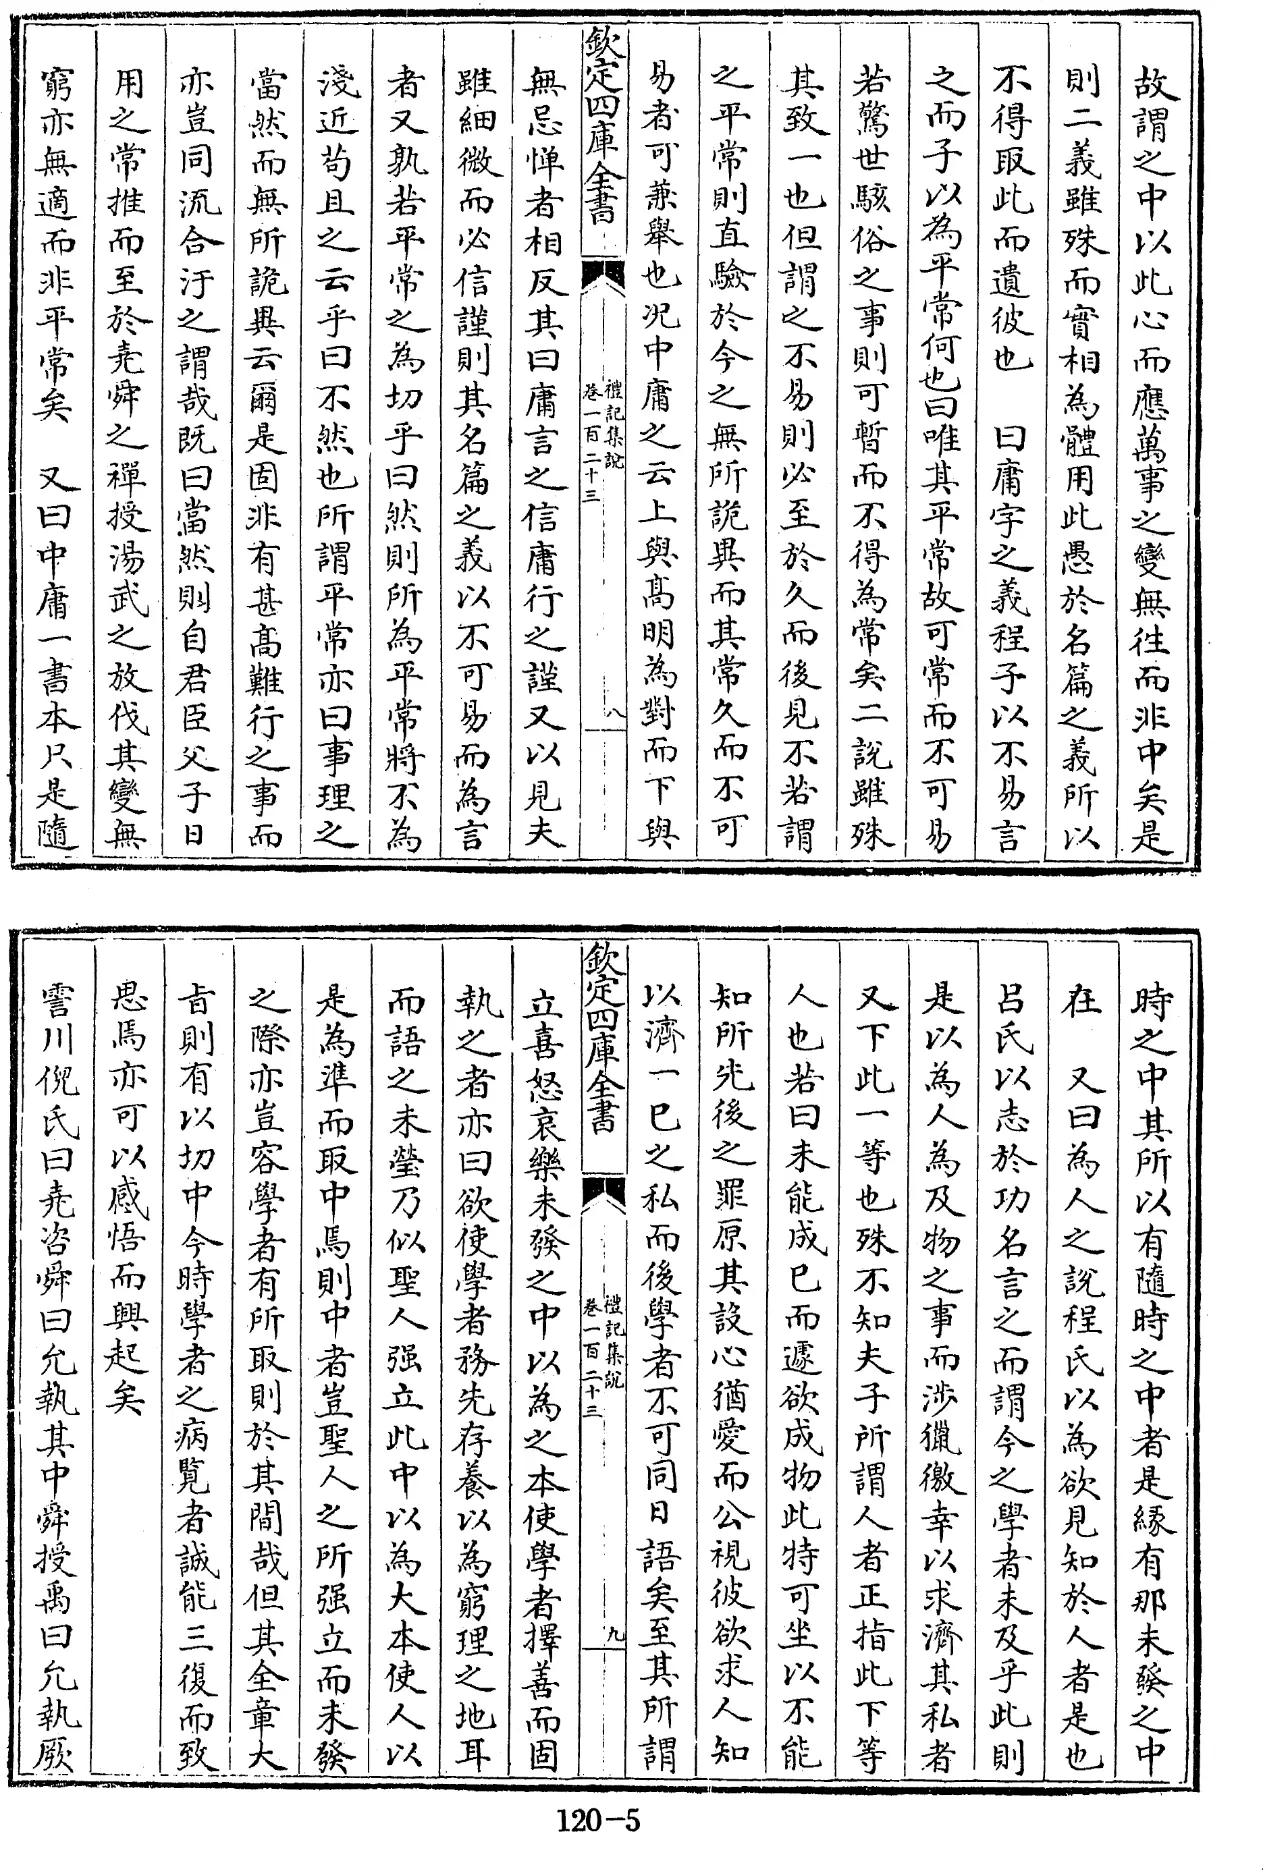 故謂之中以此心而應萬事之變無往而非中矣是
則二義雖殊而實相為體用此愚於名篇之義所以
不得取此而遺彼也　曰庸字之義程子以不易言
之而子以為平常何也曰唯其平常故可常而不可易
若驚世駭俗之事則可暫而不得為常矣二說雖殊
其致一也但謂之不易則必至於久而後見不若謂
之平常則直驗於今之無所詭異而其常久而不可
易者可兼舉也況中庸之云上與髙明為對而下與
欽定四庫全書
禮記集說
卷一百二十三
八
無忌憚者相反其曰庸言之信庸行之謹又以見夫
雖細微而必信謹則其名篇之義以不可易而為言
者又孰若平常之為切乎曰然則所為平常將不為
淺近苟且之云乎曰不然也所謂平常亦曰事理之
當然而無所詭異云爾是固非有甚髙難行之事而
亦豈同流合汙之謂哉既曰當然則自君臣父子日
用之常推而至於堯舜之禪授湯武之放伐其變無
窮亦無適而非平常矣　又曰中庸一書本只是隨
時之中其所以有隨時之中者是緣有那未發之中
在　又曰為人之說程氏以為欲見知於人者是也
呂氏以志於功名言之而謂今之學者未及乎此則
是以為人為及物之事而涉獵徼幸以求濟其私者
又下此一等也殊不知夫子所謂人者正指此下等
人也若曰未能成已而遽欲成物此特可坐以不能
知所先後之罪原其設心猶愛而公視彼欲求人知
以濟一已之私而後學者不可同日語矣至其所謂
欽定四庫全書
禮記集說
卷一百二十三
九
立喜怒哀樂未發之中以為之本使學者擇善而固
執之者亦曰欲使學者務先存養以為窮理之地耳
而語之未瑩乃似聖人强立此中以為大本使人以
是為準而取中焉則中者豈聖人之所强立而未發
之際亦豈容學者有所取則於其間哉但其全章大
㫖則有以切中今時學者之病覽者誠能三復而致
思焉亦可以感悟而興起矣
霅川倪氏曰堯咨舜曰允執其中舜授禹曰允執厥
120-5